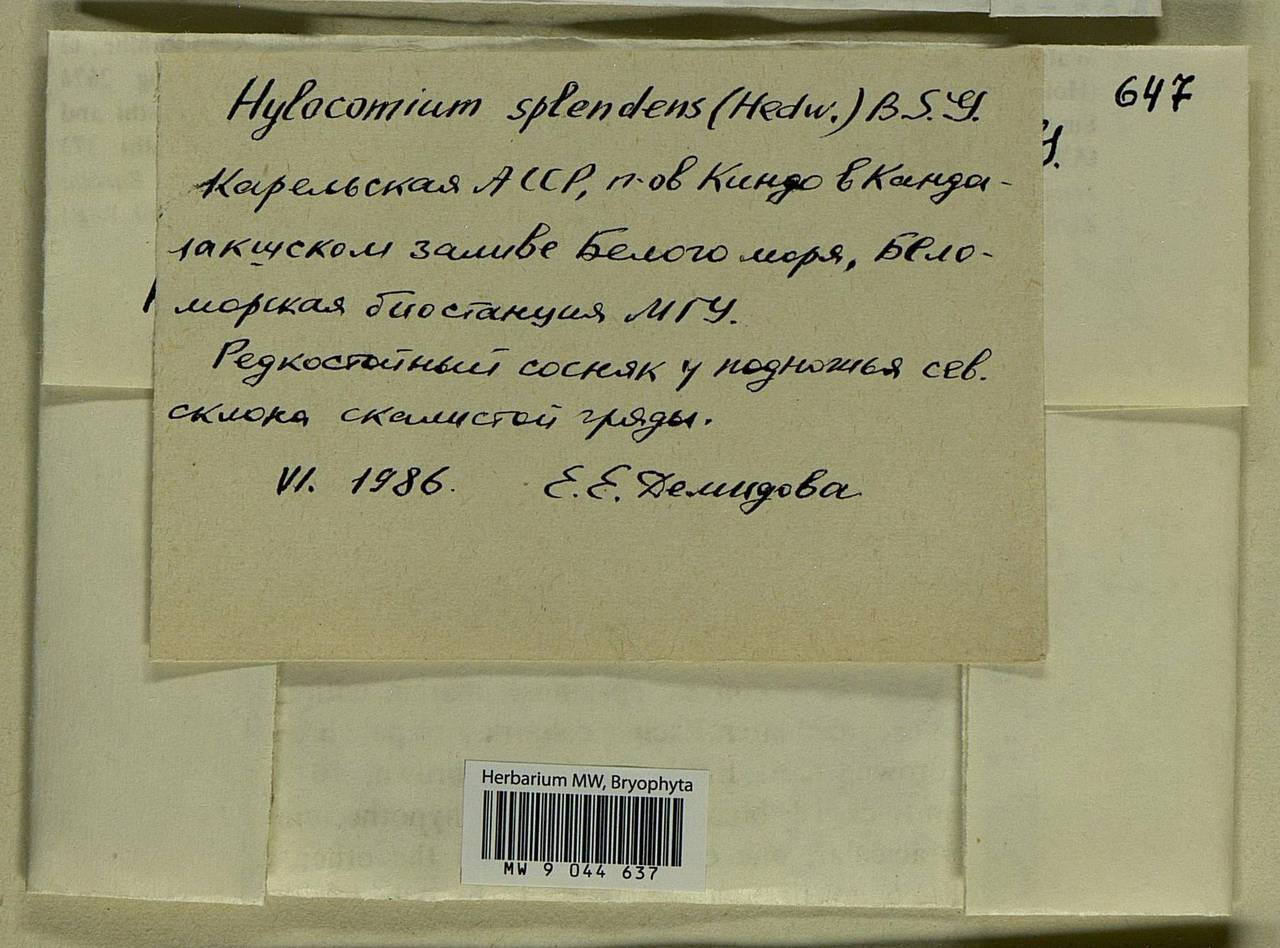 Hylocomium splendens (Hedw.) B.S.G.
647
Карельская АССР, п-ов Киндо в Канда-
лакшском заливе Белого моря, Бело-
морская биостанция МГУ.
Редкостойный сосняк у подножья сев.
склона скалистой гряды.
VI. 1986. Е.Е. Демидова
Herbarium MW, Bryophyta
MW 9 044 637